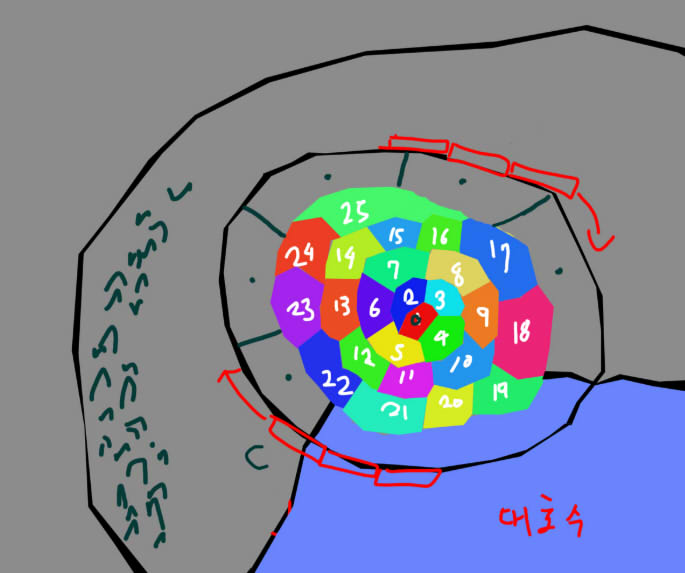 25
24 14 15 16 17
7 8
23 13 6 2 3 9 18
12 5 4 10
22 11
21 20 19
C
대호수